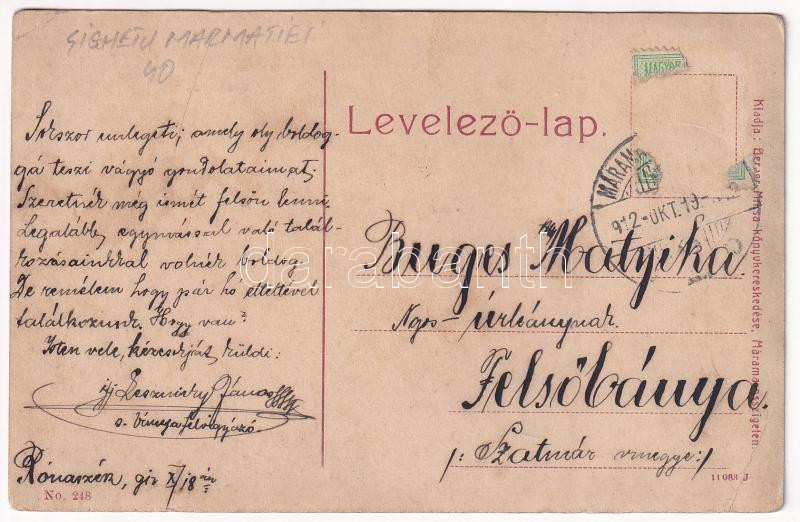 SIGHETU MARMATIEI
40
Sokszor emlegeti, amely oly boldog-
gá teszi vágyó gondolataimat.
Szeretnék még ismét felsőn lenni
Legalább egymással való talál-
kozásainkkal volnék boldog.
De remélem hogy pár hó elteltével
találkozunk. Hogy van?
Isten vele, kézcsókját küldi:
ifj János
Rónaszék, 912 X/18 án
No. 248
Levelező-lap.
MAGYAR
MÁRAM
912-OKT.19
Burger Matyika
Ngos úrleánynak
Felsőbánya.
/: Szatmár vmegye:/
11083 J
Kiadja: Berger Miksa könyvkereskedése, Máramarossziget.
darabanth